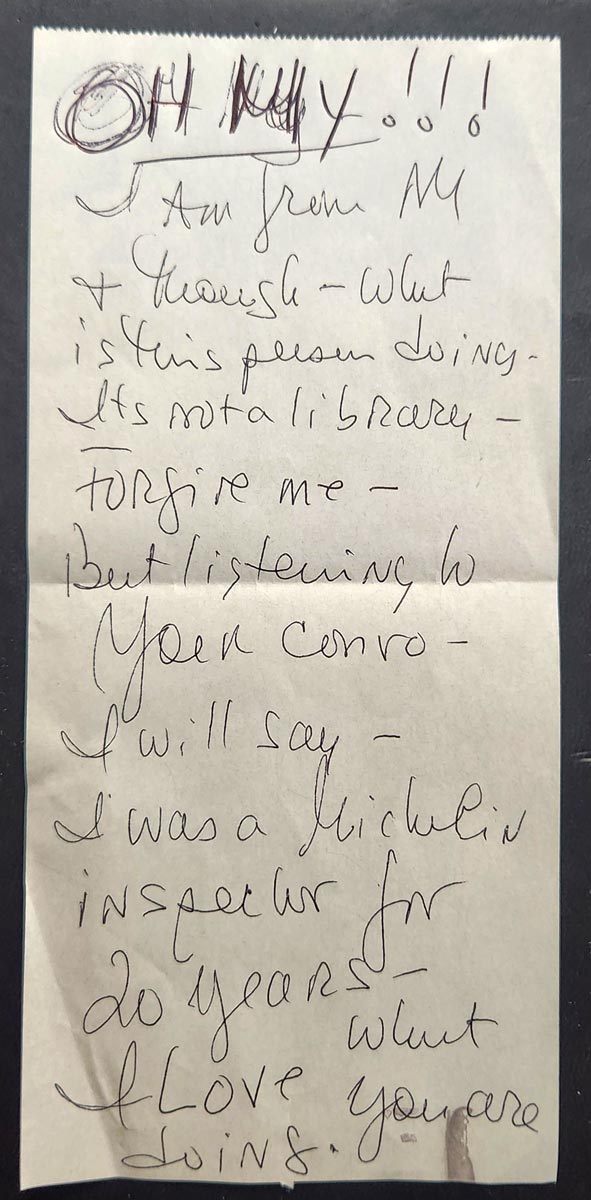 OH MY!!!
I Am from
+ though - what
is this person doing.
Its not a library -
forgive me -
But listening to
your convo -
I will say -
I was a Michelin
inspector for
20 years -
I Love what you are
doing.